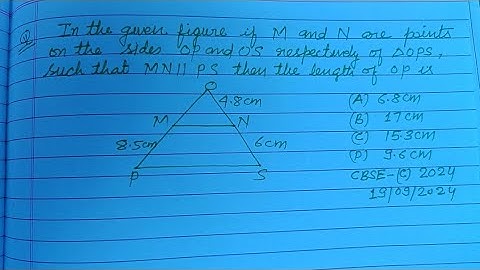 Q In the given figure if M and N are points
on the sides OP and OS respectively of △OPS,
such that MN || PS then the length of OP is
O
4.8cm
M
N
8.5cm
6cm
P
S
(A) 6.8cm
(B) 17cm
(C) 15.3cm
(D) 9.6cm
CBSE-(C) 2024
19/09/2024